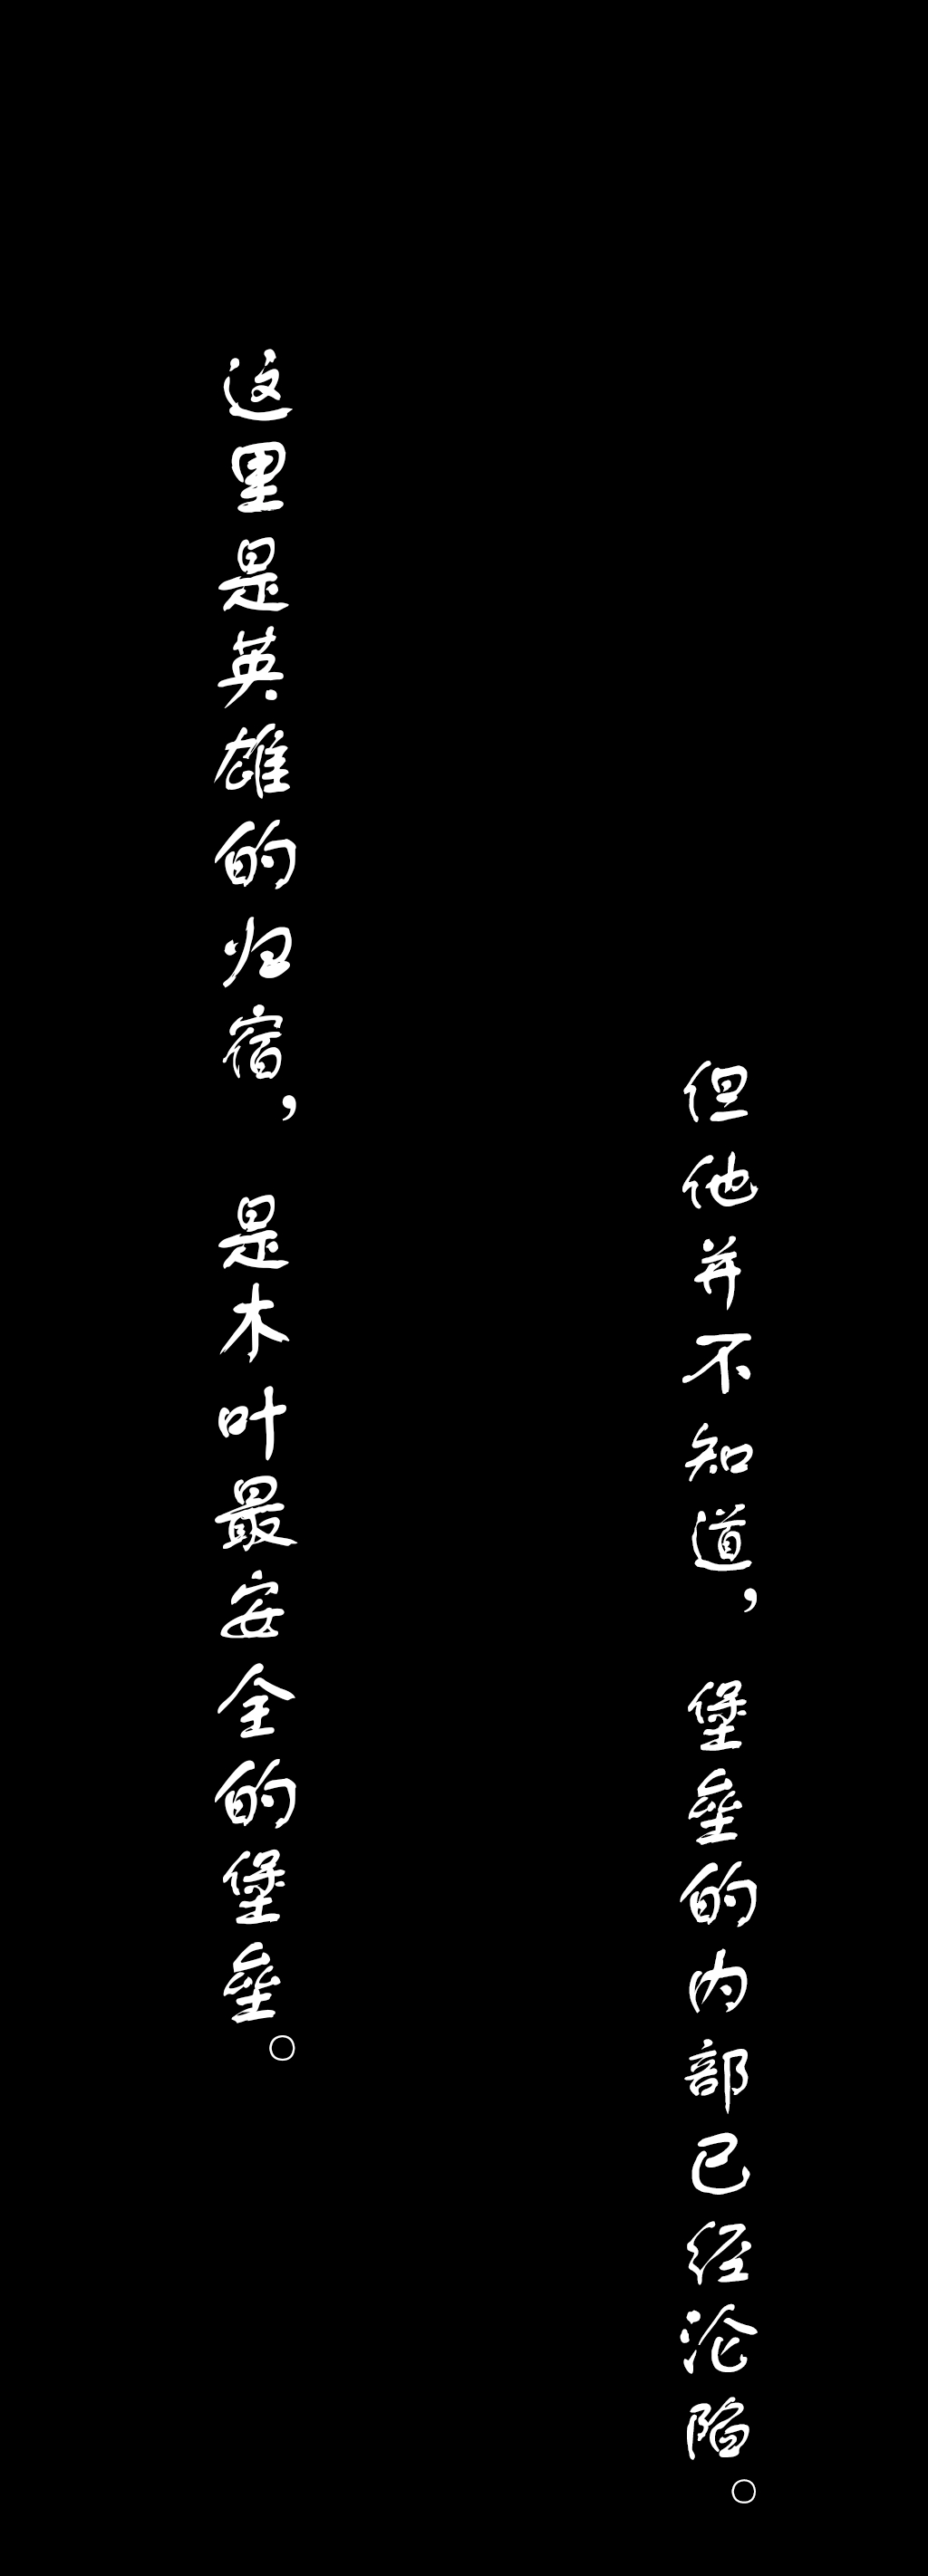 这里是英雄的归宿，是木叶最安全的堡垒。
但他并不知道，堡垒的内部已经沦陷。